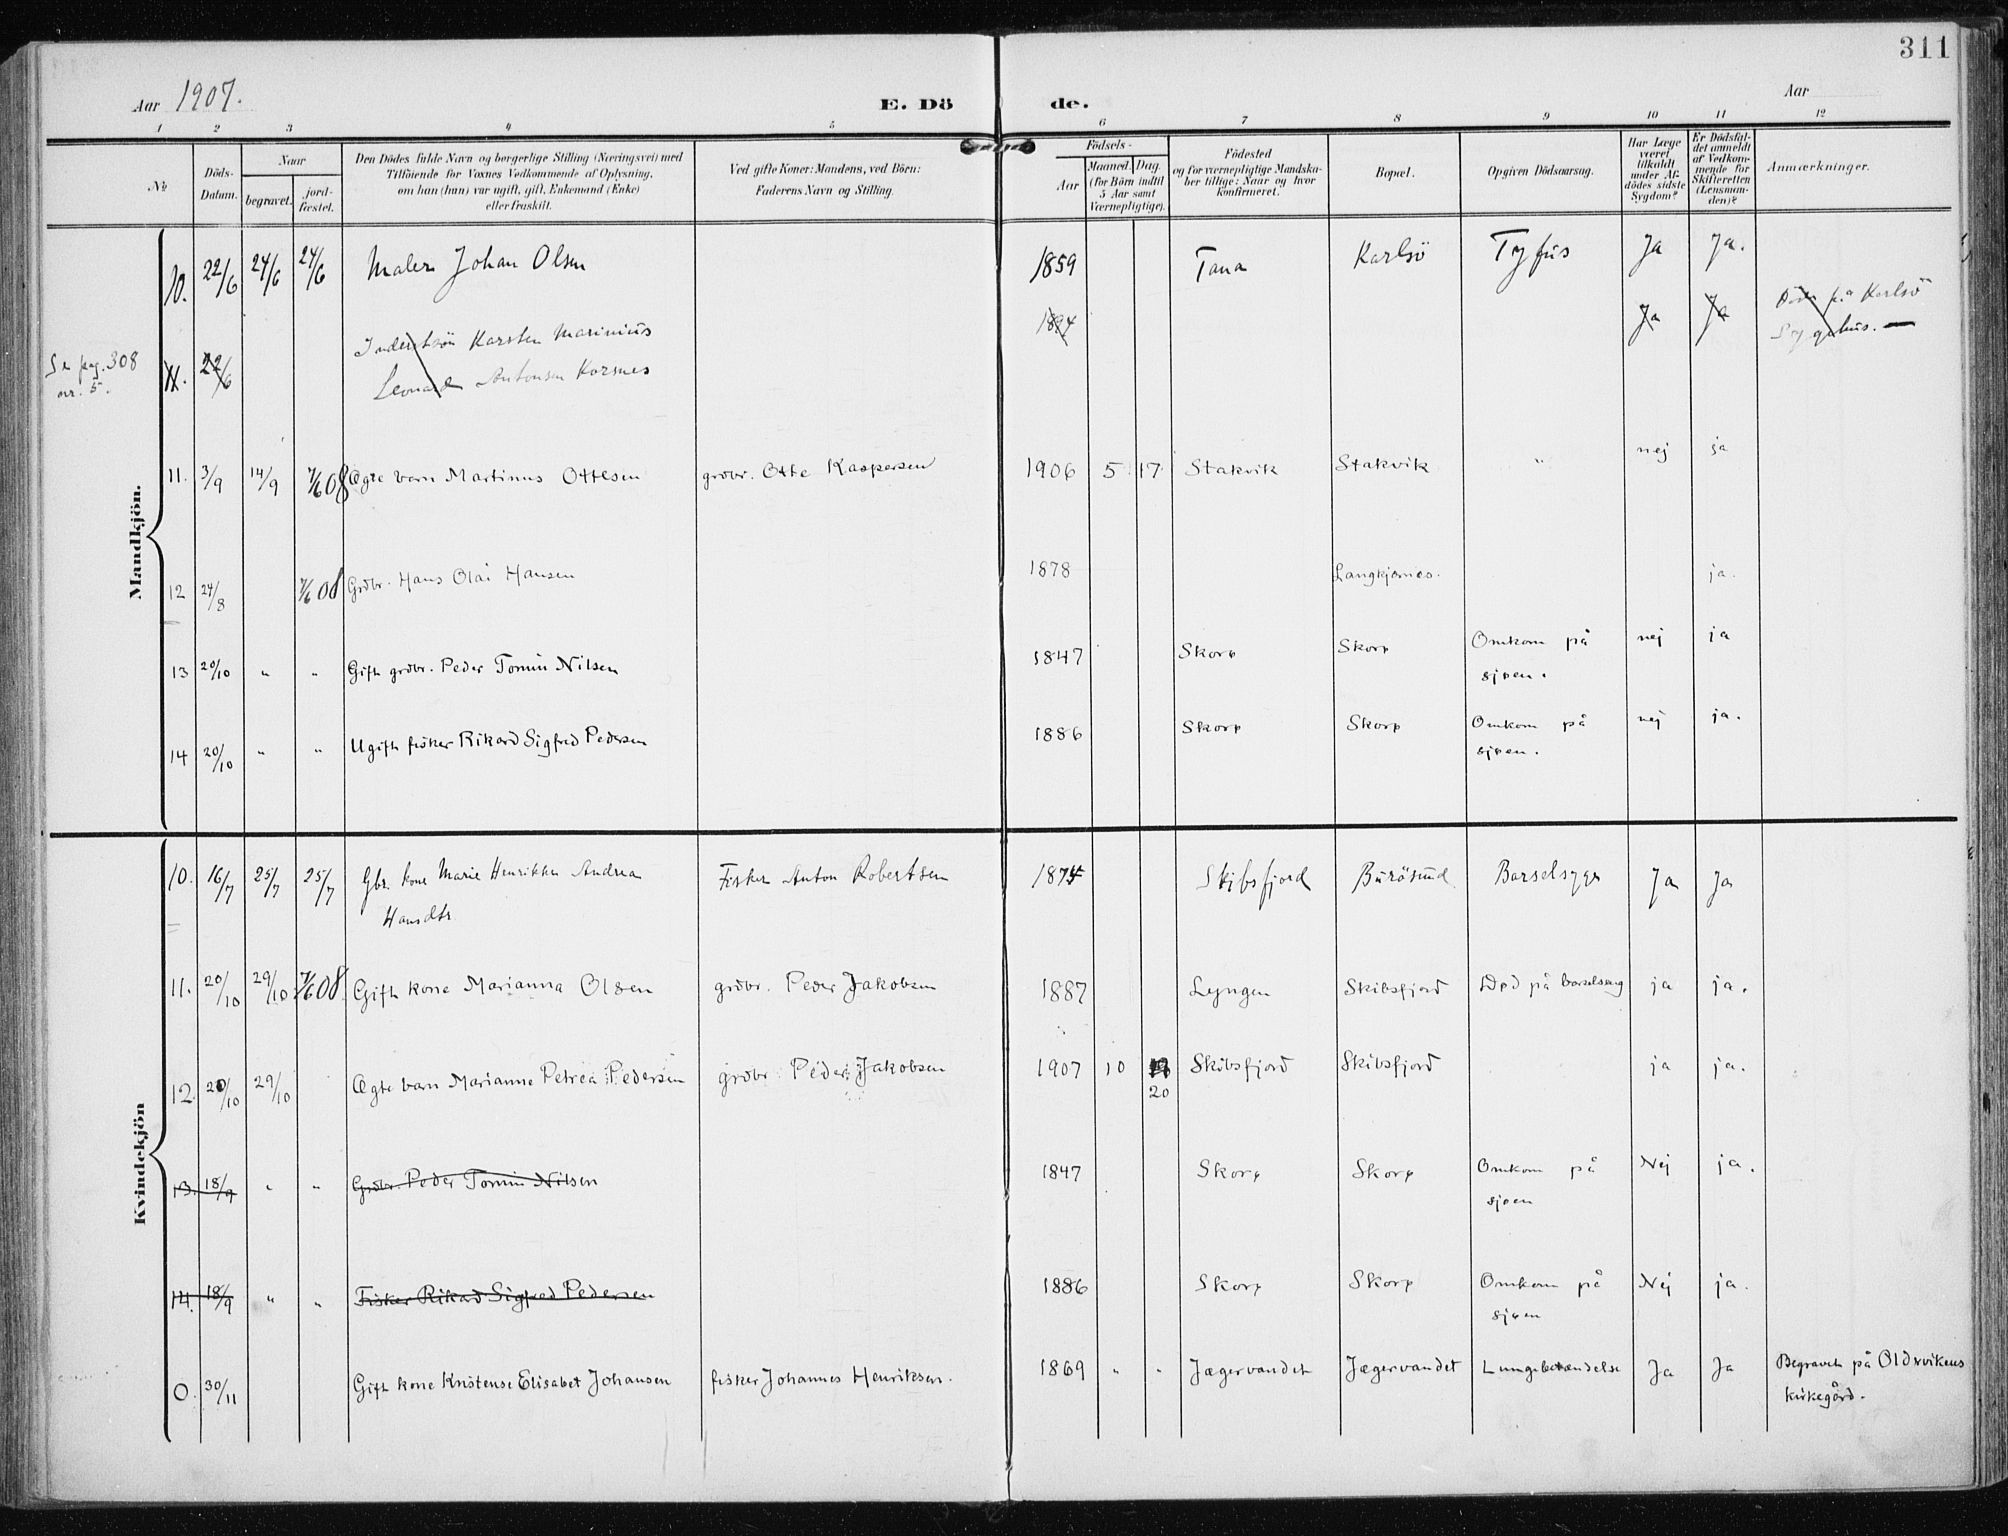 311
Aar 1907.
E. Dö de.
Aar
1 2 3 4 5 6 7 8 9 10 11 12
№
Döds-Datum.
Naar
begravet.
jord-fæstet.
Den Dödes fulde Navn og borgerlige Stilling (Næringsvei) med
Tilföiende for Voxnes Vedkommende af Oplysning,
om han (hun) var ugift, gift, Enkemand (Enke)
eller fraskilt.
Ved gifte Koner: Mandens, ved Börn:
Faderens Navn og Stilling.
Födsels-
Aar
Maaned. Dag.
(for Börn indtil
5 Aar samt
Værnepligtige).
Födested
og for værnepligtige Mandska-
ber tillige: Naar og hvor
konfirmeret.
Bopæl.
Opgiven Dödsaarsag.
Har Læge
været
tilkaldt
under Af-
dödes sidste
Sygdom?
Er Dödsfal-
det anmeldt
af Vedkom-
mende for
Skifteretten
(Lensman-
den)?
Anmærkninger.
Mandkjön.
10. 22/6 24/6 24/6 Maler Johan Olsen 1859 Tana Karlsö Tyfus Ja Ja.
Se pag. 308
nr. 5.
11. 22/6 Karsten Marinius
Leonard Antonsen Korsnes 1894 Ja Ja Döde på Karlsö
Sygehus. —
11. 3/9 14/9 7/6 08 Ægte barn Martinus Ottesen grdbr. Otte Kaspersen 1906 5 17 Stakvik Stakvik " nej ja
12 24/8 7/6 08 Grdbr. Hans Olai Hansen 1878 Langkjernes. ja.
13 20/10 " " Gift grdbr. Peder Tomin Nilsen 1847 Skorø Skorø Omkom på
sjøen. nej ja
14 20/10 " " Ugift fisker Rikard Sigfred Pedersen 1886 Skorø Skorø Omkom på
sjøen. nej ja.
Kvindekjön
10. 16/7 25/7 25/7 Gbr. kone Marie Henrikke Andrea
Hansdtr Fisker Anton Robertsen 1875 Skibsfjord Burösund Barselsyge Ja Ja
11. 20/10 29/10 7/6 08. Gift kone Marianna Olsen grdbr. Peder Jakobsen 1887 Lyngen Skibsfjord Død på barselseng ja ja.
12. 20/10 29/10 Ægte barn Marianne Petrea Pedersen grdbr. Peder Jakobsen 1907 10 20 Skibsfjord Skibsfjord ja ja.
13. 18/9 " " Grdbr. Peder Tomin Nilsen 1847 Skorø Skorø Omkom på
sjøen Nej ja.
14. 18/9 " " Fisker Rikard Sigfred Pedersen 1886 Skorø Skorø Omkom på
sjøen Nej ja.
0. 30/11 Gift kone Kristense Elisabet Johansen fisker Johannes Henriksen. 1869 " " Jægervandet Jægervandet Lungebetændelse Ja Ja Begravet på Oldervikens
kirkegård.